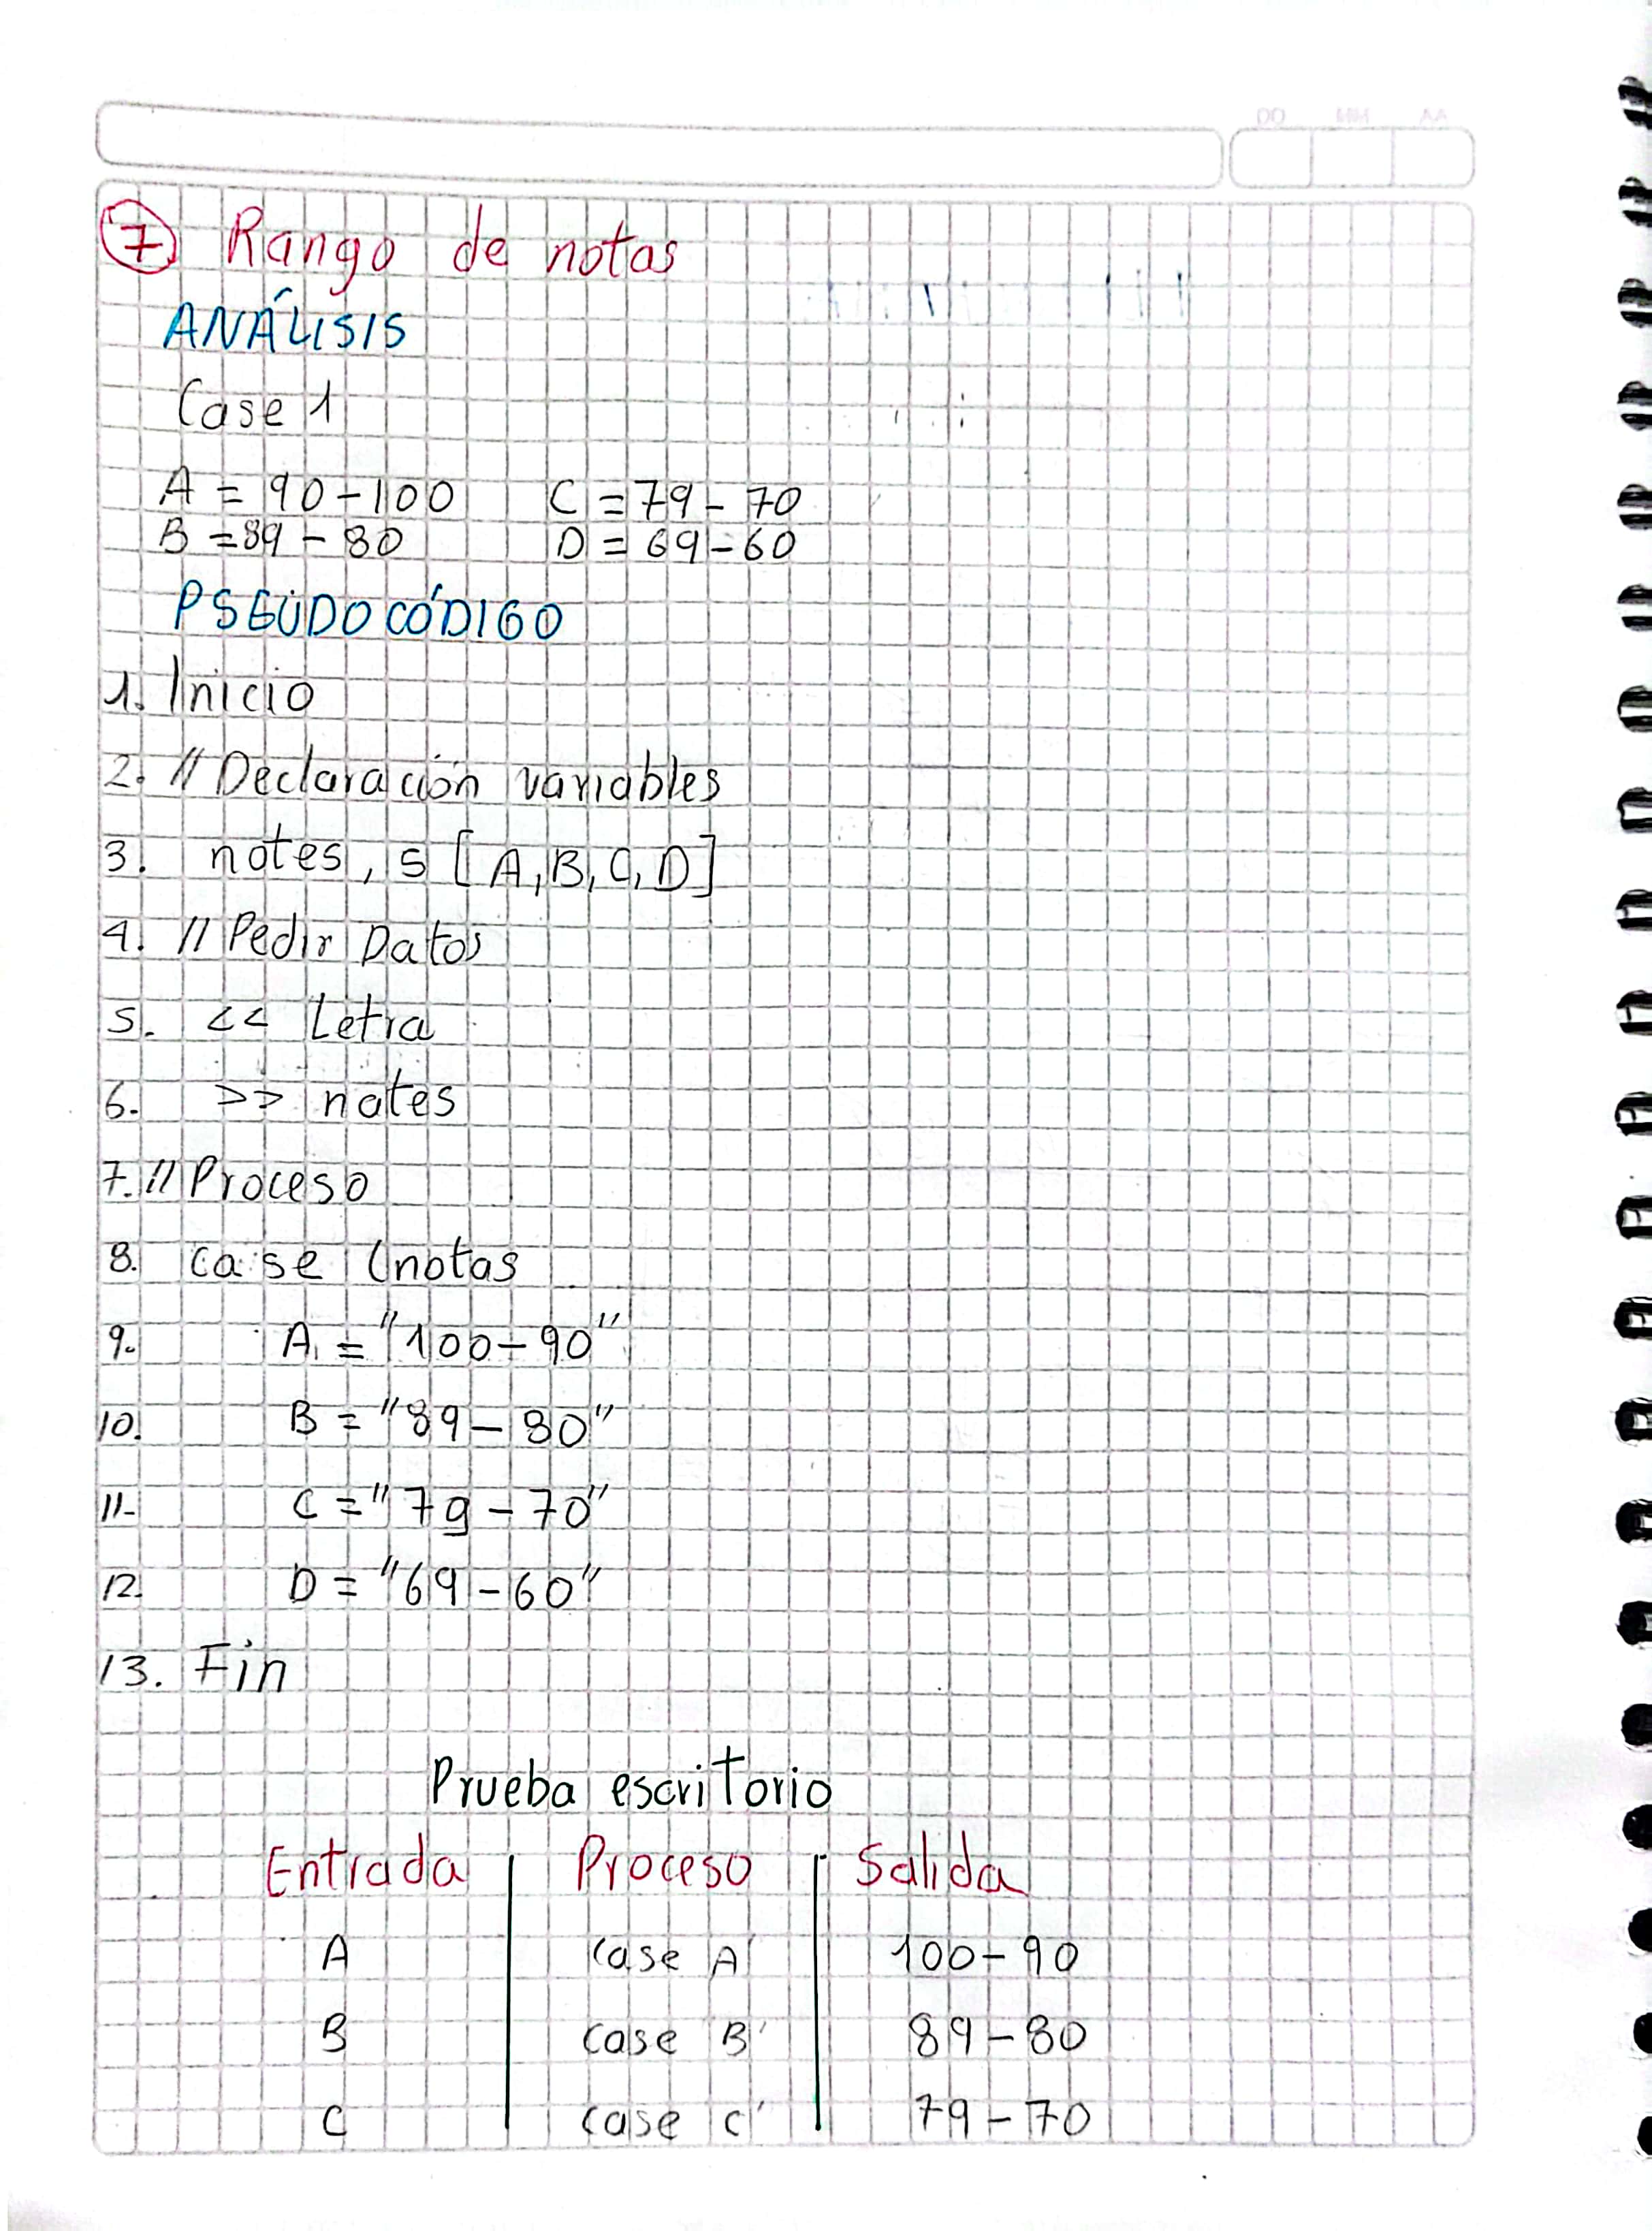 DD MM AA
7 Rango de notas
ANÁLISIS
Case 1
A = 90-100 C = 79-70
B = 89-80 D = 69-60
PSEUDOCÓDIGO
1. Inicio
2. // Declaración variables
3. notes, s [A, B, C, D]
4. // Pedir Datos
5. << Letra
6. >> notes
7. // Proceso
8. case (notas
9. A = "100-90"
10. B = "89-80"
11- C = "79-70"
12. D = "69-60"
13. Fin
Prueba escritorio
Entrada Proceso Salida
A case A' 100-90
B case B' 89-80
C case C' 79-70